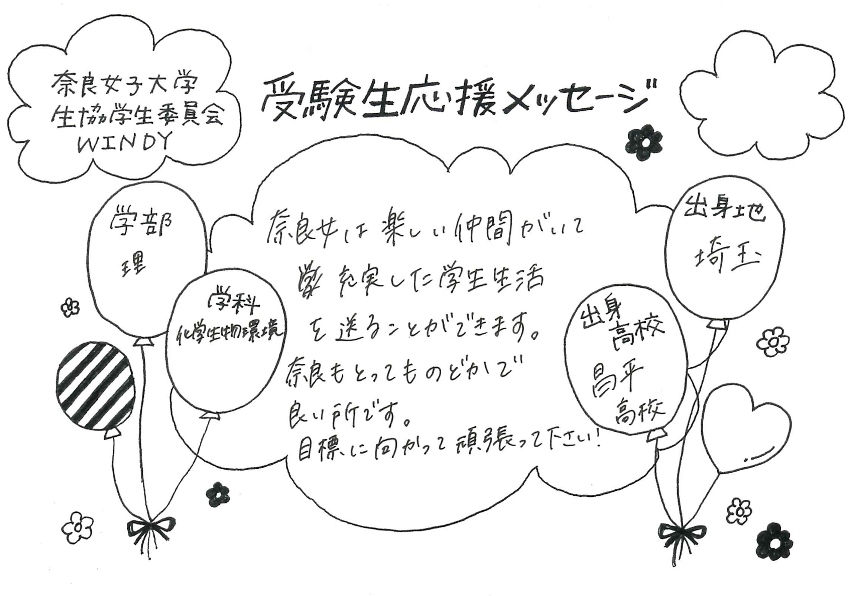 奈良女子大学
生協学生委員会
WINDY
受験生応援メッセージ
学部
理
学科
化学生物環境
奈良女は楽しい仲間がいて
充実した学生生活
を送ることができます。
奈良もとってものどかで
良い所です。
目標に向かって頑張って下さい!
出身地
埼玉
出身
高校
昌平
高校